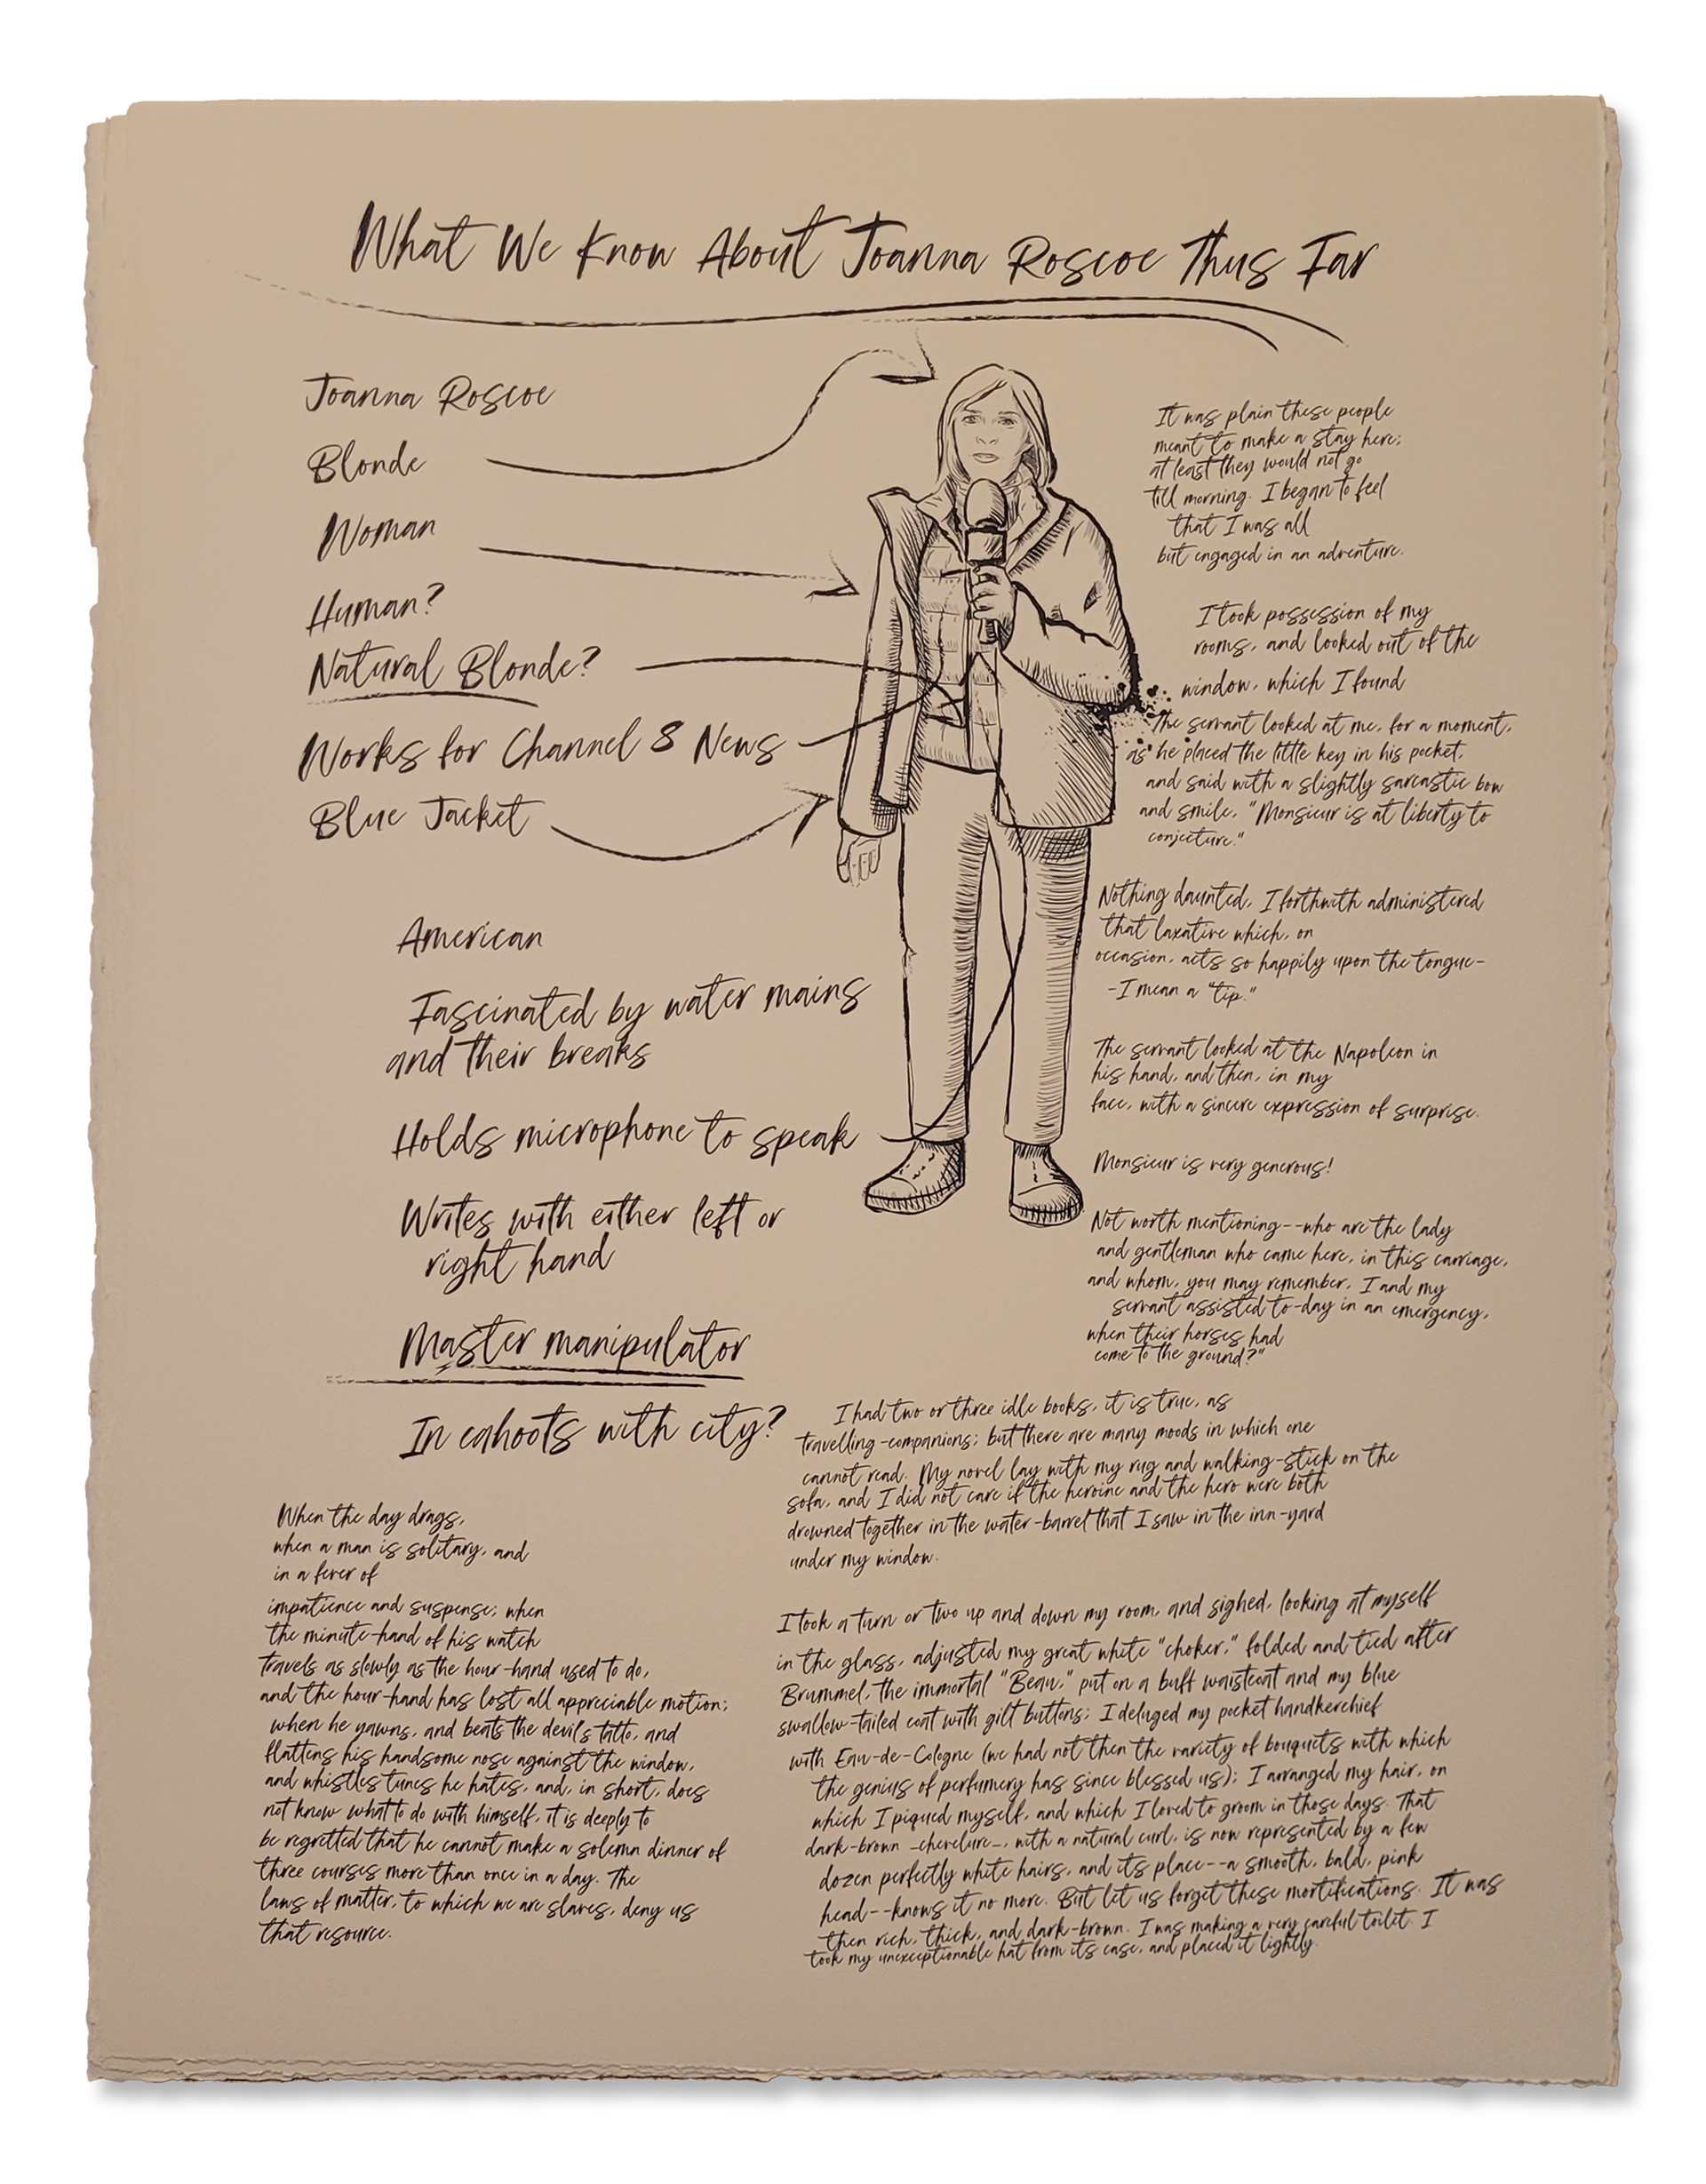 What We Know About Joanna Roscoe Thus Far
Joanna Roscoe
Blonde
Woman
Human?
Natural Blonde?
Works for Channel 8 News
Blue Jacket
American
Fascinated by water mains
and their breaks
Holds microphone to speak
Writes with either left or
right hand
Master manipulator
In cahoots with city?
It was plain these people
meant to make a stay here;
at least they would not go
till morning. I began to feel
that I was all
but engaged in an adventure.
I took possession of my
rooms, and looked out of the
window, which I found
The servant looked at me, for a moment,
as he placed the little key in his pocket,
and said with a slightly sarcastic bow
and smile, "Monsieur is at liberty to
conjecture."
Nothing daunted, I forthwith administered
that laxative which, on
occasion, acts so happily upon the tongue-
-I mean a "tip."
The servant looked at the Napoleon in
his hand, and then, in my
face, with a sincere expression of surprise.
Monsieur is very generous!
Not worth mentioning--who are the lady
and gentleman who came here, in this carriage,
and whom, you may remember, I and my
servant assisted to-day in an emergency,
when their horses had
come to the ground?"
I had two or three idle books, it is true, as
travelling-companions; but there are many moods in which one
cannot read. My novel lay with my rug and walking-stick on the
sofa, and I did not care if the heroine and the hero were both
drowned together in the water-barrel that I saw in the inn-yard
under my window.
I took a turn or two up and down my room, and sighed, looking at myself
in the glass, adjusted my great white "choker," folded and tied after
Brummel, the immortal "Beau," put on a buff waistcoat and my blue
swallow-tailed coat with gilt buttons; I deluged my pocket handkerchief
with Eau-de-Cologne (we had not then the variety of bouquets with which
the genius of perfumery has since blessed us); I arranged my hair, on
which I piqued myself, and which I loved to groom in those days. That
dark-brown _chevelure_, with a natural curl, is now represented by a few
dozen perfectly white hairs, and its place--a smooth, bald, pink
head--knows it no more. But let us forget these mortifications. It was
then rich, thick, and dark-brown. I was making a very careful toilet. I
took my unexceptionable hat from its case, and placed it lightly
When the day drags,
when a man is solitary, and
in a fever of
impatience and suspense; when
the minute-hand of his watch
travels as slowly as the hour-hand used to do,
and the hour-hand has lost all appreciable motion;
when he yawns, and beats the devil's tatto, and
flattens his handsome nose against the window,
and whistles tunes he hates, and, in short, does
not know what to do with himself, it is deeply to
be regretted that he cannot make a solemn dinner of
three courses more than once in a day. The
laws of matter, to which we are slaves, deny us
that resource.